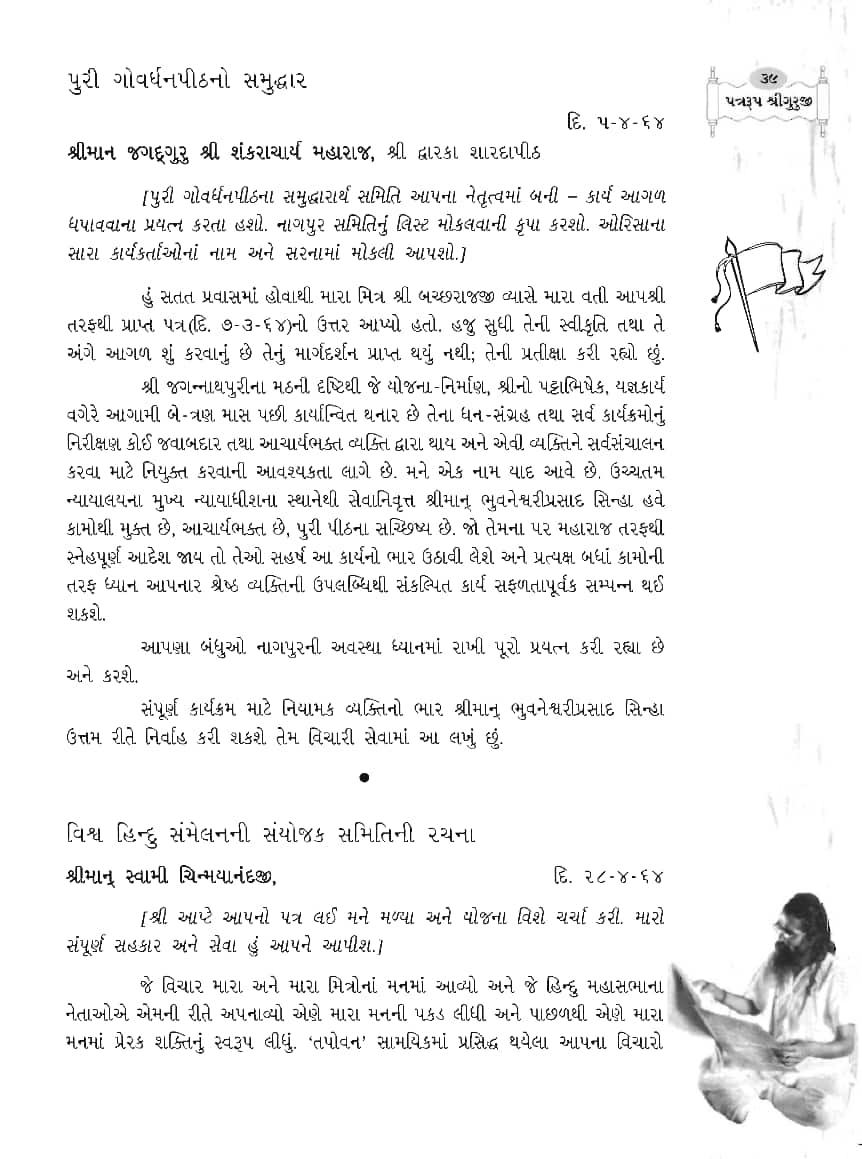 ૩૯
પત્રરૂપ શ્રીગુરુજી
પુરી ગોવર્ધનપીઠનો સમુદ્ધાર
દિ. ૫-૪-૬૪
શ્રીમાન જગદ્ગુરુ શ્રી શંકરાચાર્ય મહારાજ, શ્રી દ્વારકા શારદાપીઠ
[પુરી ગોવર્ધનપીઠના સમુદ્ધારાર્થ સમિતિ આપના નેતૃત્વમાં બની – કાર્ય આગળ
ધપાવવાના પ્રયત્ન કરતા હશો. નાગપુર સમિતિનું લિસ્ટ મોકલવાની કૃપા કરશો. ઓરિસાના
સારા કાર્યકર્તાઓનાં નામ અને સરનામાં મોકલી આપશો.]
હું સતત પ્રવાસમાં હોવાથી મારા મિત્ર શ્રી બચ્છરાજજી વ્યાસે મારા વતી આપશ્રી
તરફથી પ્રાપ્ત પત્ર(દિ. ૭-૩-૬૪)નો ઉત્તર આપ્યો હતો. હજુ સુધી તેની સ્વીકૃતિ તથા તે
અંગે આગળ શું કરવાનું છે તેનું માર્ગદર્શન પ્રાપ્ત થયું નથી; તેની પ્રતીક્ષા કરી રહ્યો છું.
શ્રી જગન્નાથપુરીના મઠની દૃષ્ટિથી જે યોજના-નિર્માણ, શ્રીનો પટ્ટાભિષેક, યજ્ઞકાર્ય
વગેરે આગામી બે-ત્રણ માસ પછી કાર્યાન્વિત થનાર છે તેના ધન-સંગ્રહ તથા સર્વ કાર્યક્રમોનું
નિરીક્ષણ કોઈ જવાબદાર તથા આચાર્યભક્ત વ્યક્તિ દ્વારા થાય અને એવી વ્યક્તિને સર્વસંચાલન
કરવા માટે નિયુક્ત કરવાની આવશ્યકતા લાગે છે. મને એક નામ યાદ આવે છે. ઉચ્ચતમ
ન્યાયાલયના મુખ્ય ન્યાયાધીશના સ્થાનેથી સેવાનિવૃત્ત શ્રીમાન્ ભુવનેશ્વરીપ્રસાદ સિન્હા હવે
કામોથી મુક્ત છે, આચાર્યભક્ત છે, પુરી પીઠના સચ્છિષ્ય છે. જો તેમના પર મહારાજ તરફથી
સ્નેહપૂર્ણ આદેશ જાય તો તેઓ સહર્ષ આ કાર્યનો ભાર ઉઠાવી લેશે અને પ્રત્યક્ષ બધાં કામોની
તરફ ધ્યાન આપનાર શ્રેષ્ઠ વ્યક્તિની ઉપલબ્ધિથી સંકલ્પિત કાર્ય સફળતાપૂર્વક સમ્પન્ન થઈ
શકશે.
આપણા બંધુઓ નાગપુરની અવસ્થા ધ્યાનમાં રાખી પૂરો પ્રયત્ન કરી રહ્યા છે
અને કરશે.
સંપૂર્ણ કાર્યક્રમ માટે નિયામક વ્યક્તિનો ભાર શ્રીમાન્ ભુવનેશ્વરીપ્રસાદ સિન્હા
ઉત્તમ રીતે નિર્વાહ કરી શકશે તેમ વિચારી સેવામાં આ લખું છું.
●
વિશ્વ હિન્દુ સંમેલનની સંયોજક સમિતિની રચના
શ્રીમાન્ સ્વામી ચિન્મયાનંદજી, દિ. ૨૮-૪-૬૪
[શ્રી આપ્ટે આપનો પત્ર લઈ મને મળ્યા અને યોજના વિશે ચર્ચા કરી. મારો
સંપૂર્ણ સહકાર અને સેવા હું આપને આપીશ.]
જે વિચાર મારા અને મારા મિત્રોનાં મનમાં આવ્યો અને જે હિન્દુ મહાસભાના
નેતાઓએ એમની રીતે અપનાવ્યો એણે મારા મનની પકડ લીધી અને પાછળથી એણે મારા
મનમાં પ્રેરક શક્તિનું સ્વરૂપ લીધું. ‘તપોવન’ સામયિકમાં પ્રસિદ્ધ થયેલા આપના વિચારો